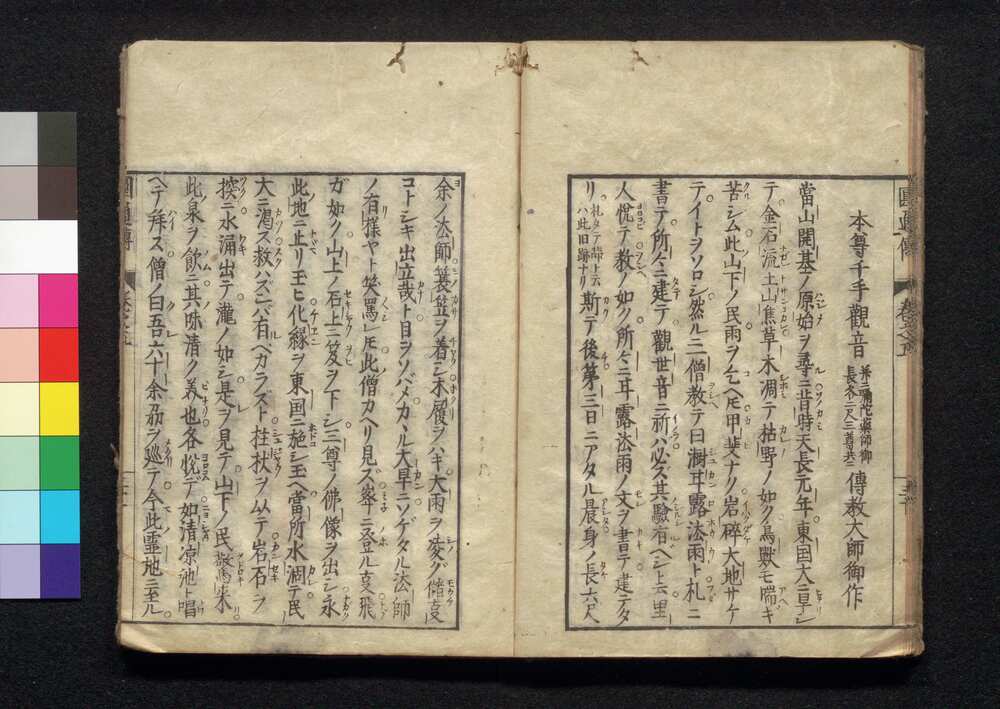 本尊千手觀音 并ニ彌陀藥師御長各二尺三尊共ニ 傳教大師御作
當山開基ノ原始ヲ尋ニ昔時天長元年東国大ニ旱シ
テ金石流土山焦草木凋テ枯野ノ如ク鳥獸モ喘キ
苦シム此山下ノ民雨ヲ乞ヘ𪜈甲斐ナク岩碎大地サケ
テイトヲソロシ然ルニ一僧教テ曰澍甘露法雨ト札ニ
書テ所々ニ建テ觀世音ニ祈ハ必ズ其驗有ヘシト云里
人悦テ教ノ如ク所々ニ甘露法雨ノ文ヲ書テ建テタ
リ 札タテ峠ト云ハ此旧跡ナリ 斯テ後第三日ニアタル晨身ノ長六尺
余ノ法師簑笠ヲ着シ木履ヲハキ大雨ヲ凌グ儲支
コトシキ出立哉ト目ヲソバメカヽル大旱ニソゲタル法師
ノ有樣ヤト笑罵レ𪜈此僧カヘリ見ズ峯ニ登ル支飛
ガ如ク山上ノ石上ニ笈ヲ下シ三尊ノ佛像ヲ出シ永
此地ニ止リ玉ヒ化縁ヲ東国ニ施シ玉ヘ當所水涸テ民
大ニ渇ス救ハズンバ有ベカラズト拄杖ヲ以テ岩石ヲ
揬ニ水涌出テ瀧ノ如シ是ヲ見テ山下ノ民驚來
此泉ヲ飲ニ其味清ク美也各悦デ如清凉池ト唱
ヘテ拜ス僧ノ曰吾六十余刕ヲ廵テ今此靈地ニ至ル